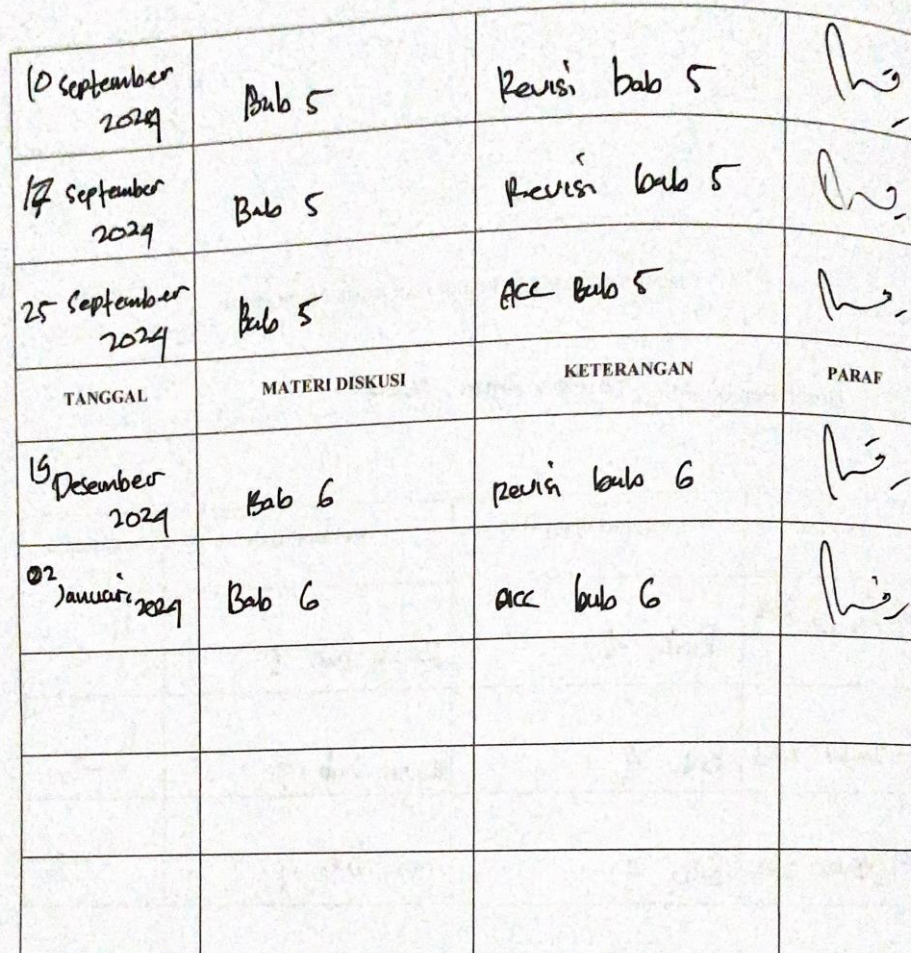 10 September
2024
Bab 5
Revisi bab 5
17 September
2024
Bab 5
Revisi bab 5
25 September
2024
Bab 5
Acc Bab 5
TANGGAL
MATERI DISKUSI
KETERANGAN
PARAF
Desember
2024
Bab 6
Revisi bab 6
02
Januari 2024
Bab 6
acc bab 6